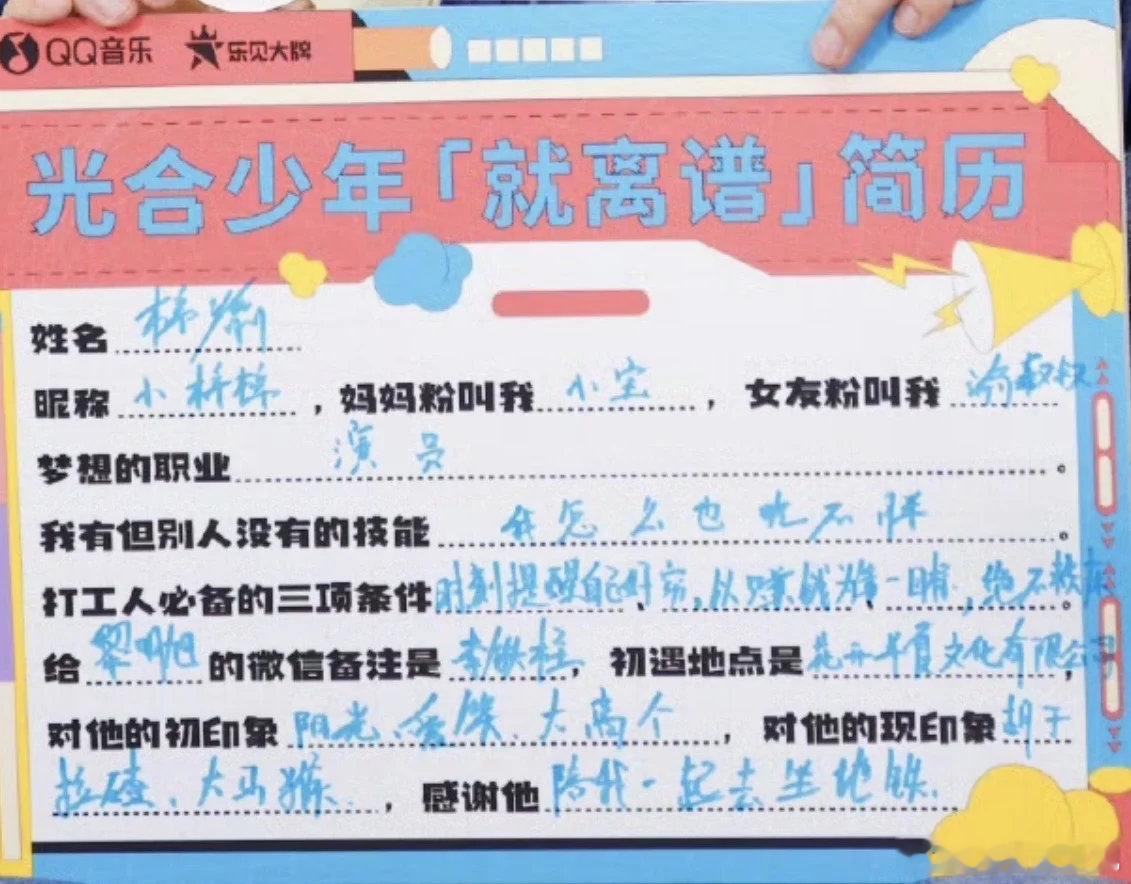 QQ音乐 乐见大牌
光合少年「就离谱」简历
姓名 梓渝
昵称 小梓梓，妈妈粉叫我 小宝，女友粉叫我 渝叔叔
梦想的职业 演员。
我有但别人没有的技能 我怎么也吃不胖。
打工人必备的三项条件 时刻提醒自己好穷，从 赚钱 一 ，绝不
给 黎明旭 的微信备注是 李铁柱，初遇地点是 花开半夏文化有限公司，
对他的初印象 阳光、爱笑、大高个，对他的现印象 胡子
拉碴、大马猴，感谢他 陪我一起去坐地铁.